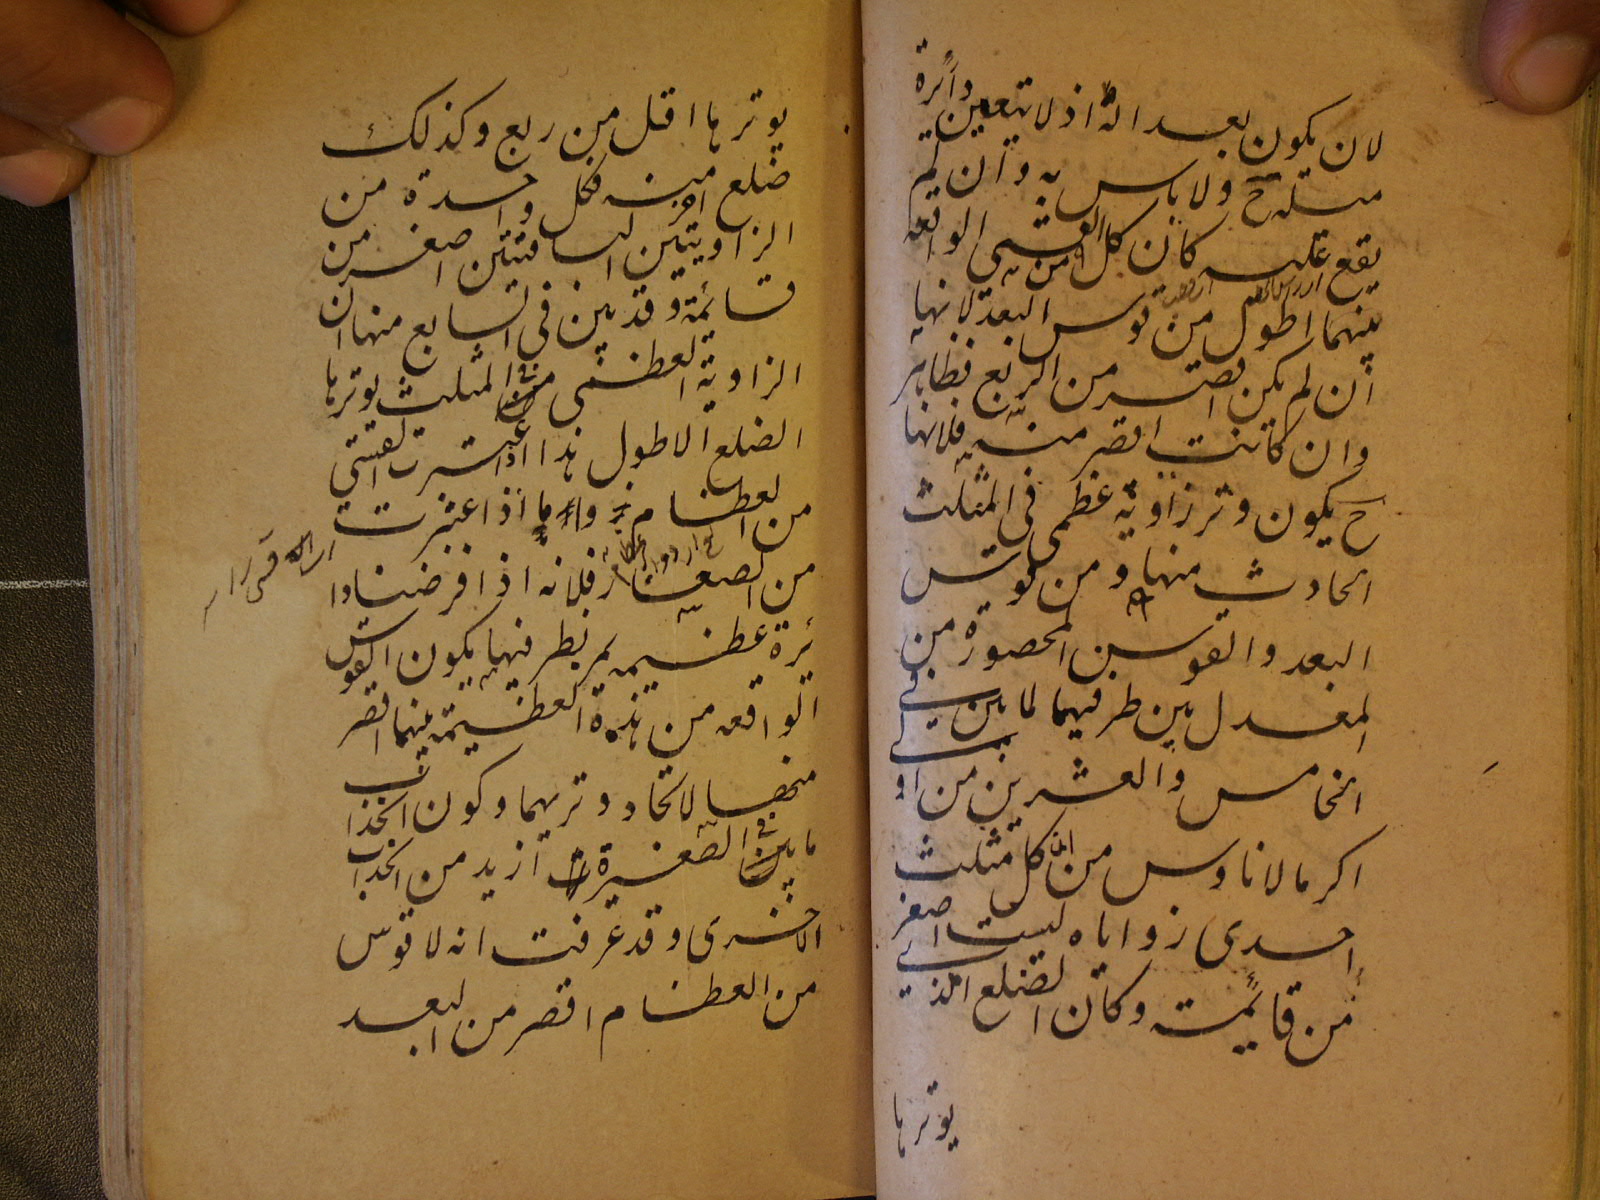 لان يكون بعد اله اذ لا يتعين دائرة
ميله ح ولا باس به وان لم
يقع عليه كان كل من القسى الواقعه
بينهما اطول من قوس البعد لانها
ان لم يكن اقصر من الربع فظاهر
وان كانت اقصر منه فلانها
ح يكون وتر زاوية عظمى فى المثلث
الحادث منها ومن قوس
البعد والقوس المحصورة من
المعدل بين طرفيهما لما بين فى
الخامس والعشرين من اولى
اكر مالاناوس من ان كل مثلث
احدى زواياه ليست اصغر
من قائمة وكان الضلع الذى
يوترها
يوترها اقل من ربع وكذلك
ضلع اخر منه فكل واحدة من
الزاويتين الباقيتين اصغر من
قائمة وقد بين فى السابع منها ان
الزاوية العظمى فى المثلث يوترها
الضلع الاطول هذا اذا اعتبرت القسى
من العظام واما اذا اعتبرت
من الصغار فلانه اذا فرضنا دا
ئرة عظيمه يمر بطرفيها يكون القوس
الواقعه من هذه العظيمة بينهما اقصر
منها لاتحاد وتريهما وكون انجذاب
ما فى الصغيرة ازيد من انجذاب
الاخرى وقد عرفت انه لا قوس
من العظام اقصر من البعد